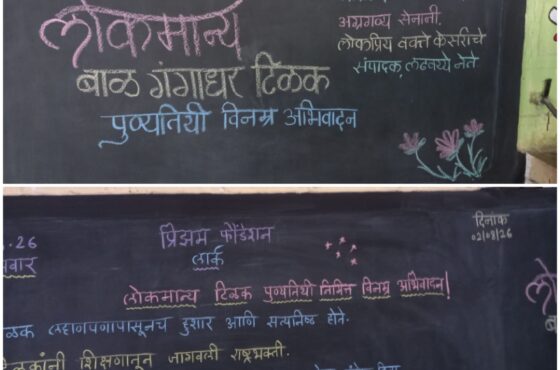 लोकमान्य
बाळ गंगाधर टिळक
पुण्यतिथी विनम्र अभिवादन
अग्रगण्य सेनानी,
लोकप्रिय वक्ते केसरीचे
संपादक, लढवय्ये नेते
.26
वार
प्रिझम फौंडेशन
लार्क
दिनांक
02/08/26
लोकमान्य टिळक पुण्यतिथी निमित्त विनम्र अभिवादन!
ळक लहानपणापासूनच हुशार आणि सत्यनिष्ठ होते.
ळकांनी शिक्षणातून जागवली राष्ट्रभक्ती.
लो
बा